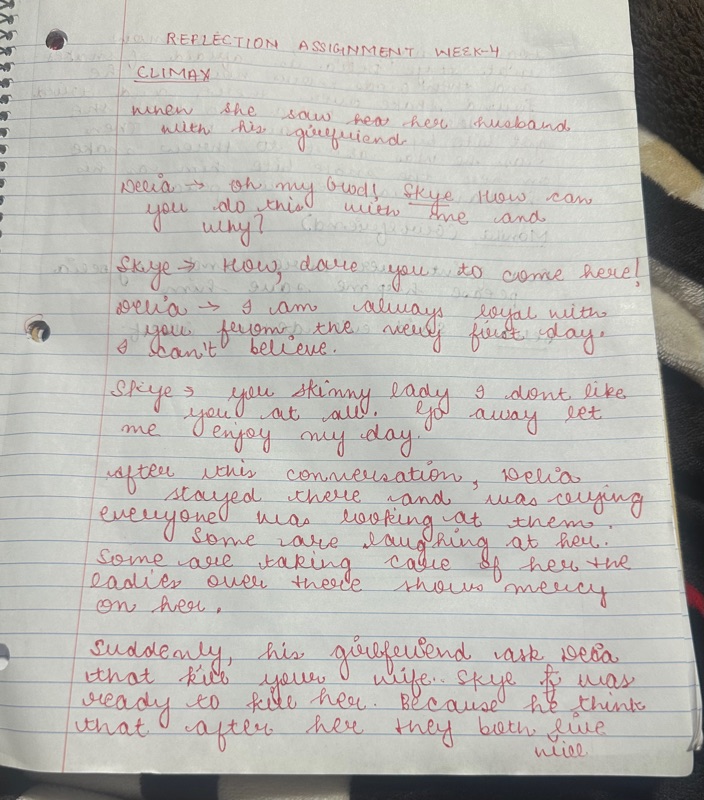 REFLECTION ASSIGNMENT WEEK-4
CLIMAX
when she saw her her husband
with his girlfriend
Delia → Oh my God! Skye How can
you do this with me and
why?
Skye → How, dare you to come here!
Delia → I am always loyal with
you from the very first day.
I can't believe.
Skye → you skinny lady I dont like
you at all. Go away let
me enjoy my day.
After this conversation, Delia
stayed there and was crying
everyone was looking at them.
Some are laughing at her.
Some are taking care of her the
ladies over there shows mercy
on her.
Suddenly, his girlfriend ask Delia
that kill your wife.. Skye was
ready to kill her. Because he think
that after her they both live
will